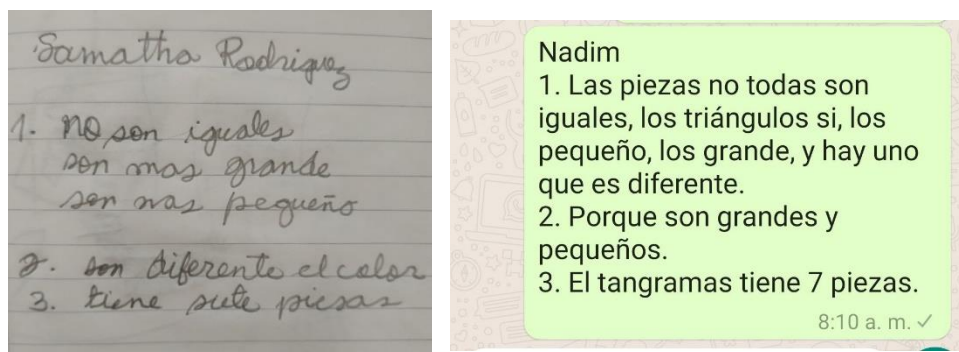 Samatha Rodriguez
1. no son iguales
son mas grande
son mas pequeño
2. son diferente el color
3. tiene siete piesas
Nadim
1. Las piezas no todas son
iguales, los triángulos si, los
pequeño, los grande, y hay uno
que es diferente.
2. Porque son grandes y
pequeños.
3. El tangramas tiene 7 piezas.
8:10 a. m.